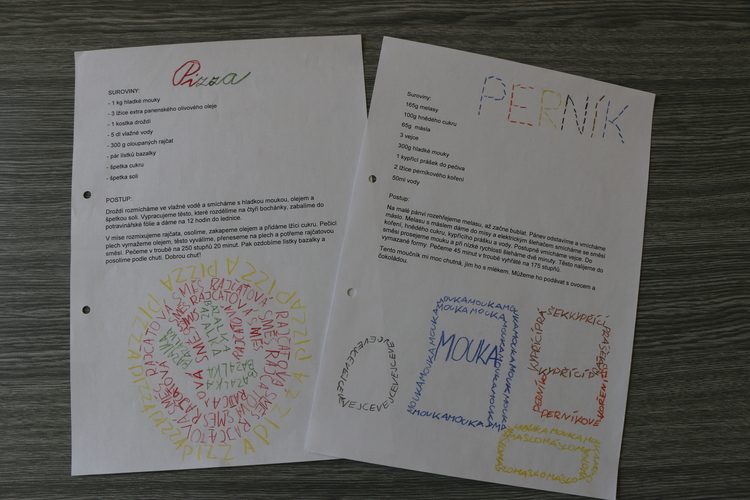 Pizza
SUROVINY:
- 1 kg hladké mouky
- 3 lžíce extra panenského olivového oleje
- 1 kostka droždí
- 5 dl vlažné vody
- 300 g oloupaných rajčat
- pár lístků bazalky
- špetka cukru
- špetka soli
POSTUP:
Droždí rozmícháme ve vlažné vodě a smícháme s hladkou moukou, olejem a
špetkou soli. Vypracujeme těsto, které rozdělíme na čtyři bochánky, zabalíme do
potravinářské fólie a dáme na 12 hodin do lednice.
V míse rozmixujeme rajčata, osolíme, zakapeme olejem a přidáme lžíci cukru. Pečící
plech vymažeme olejem, těsto vyválíme, přeneseme na plech a potřeme rajčatovou
směsí. Pečeme v troubě na 250 stupňů 20 minut. Pak ozdobíme lístky bazalky a
posolíme podle chuti. Dobrou chuť!
PIZZA PIZZA PIZZA
RAJČATOVÁ SMĚS RAJČATOVÁ SMĚS
BAZALKA BAZALKA
PERNÍK
Suroviny:
165g melasy
100g hnědého cukru
65g másla
3 vejce
300g hladké mouky
1 kypřící prášek do pečiva
2 lžíce perníkového koření
50ml vody
Postup:
Na malé pánvi rozehřejeme melasu, až začne bublat. Pánev odstavíme a vmícháme
máslo. Melasu s máslem dáme do mísy a elektrickým šlehačem smícháme se směsí
koření, hnědého cukru, kypřícího prášku a vody. Postupně vmícháme vejce. Do
směsi prosejeme mouku a při nízké rychlosti šleháme dvě minuty. Těsto nalijeme do
vymazané formy. Pečeme 45 minut v troubě vyhřáté na 175 stupňů.
Tento moučník mi moc chutná, jím ho s mlékem. Můžeme ho podávat s ovocem a
čokoládou.
VEJCEVEJCEVEJCEVEJCE
MOUKAMOUKAMOUKA
MOUKA
KYPŘÍCÍ
PERNÍKOVÉ
MÁSLOMÁSLOMÁSLO